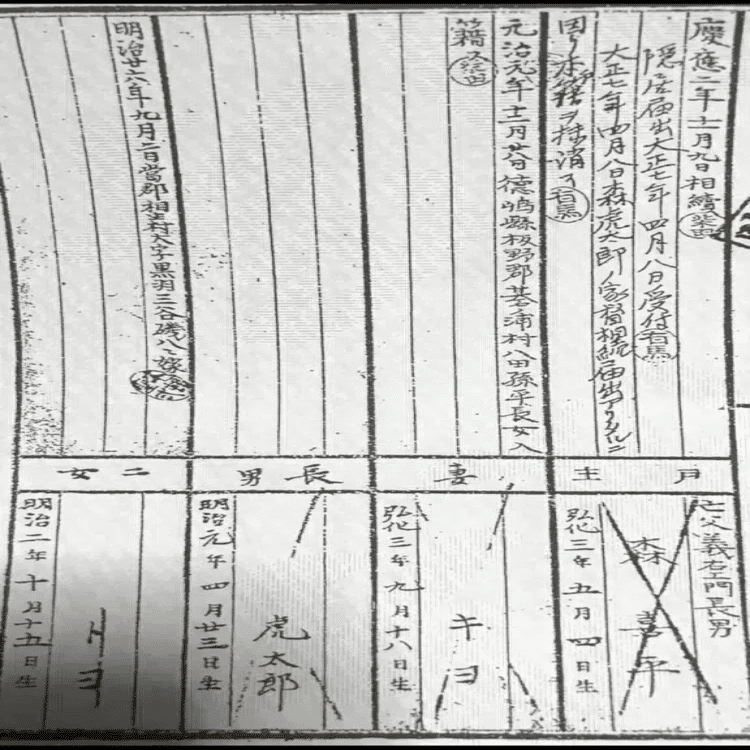 慶應二年十一月九日相續
隠居届出大正七年四月八日受付有馬
大正七年四月八日森虎太郎ノ家督相続届出アリタルニ
因リ本籍ヲ抹消ス有馬
元治元年十二月廿八日徳島縣板野郡基浦村八田孫平長女入
籍
明治廿六年九月二日當郡相生村大字黒羽三谷磯八ヘ嫁
戸主
妻
長男
二女
亡父義右エ門長男
森喜平
弘化三年五月四日生
キヨ
弘化三年九月十八日生
虎太郎
明治元年四月廿三日生
トヨ
明治二年十月十五日生